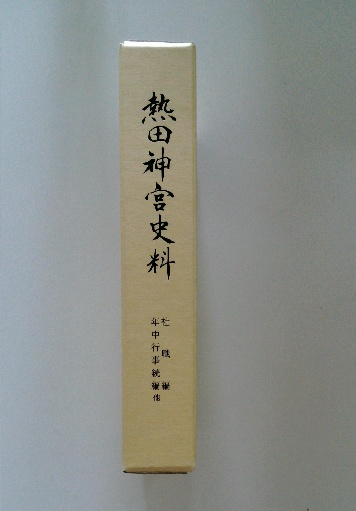 熱田神宮史料
社職編
年中行事続編他